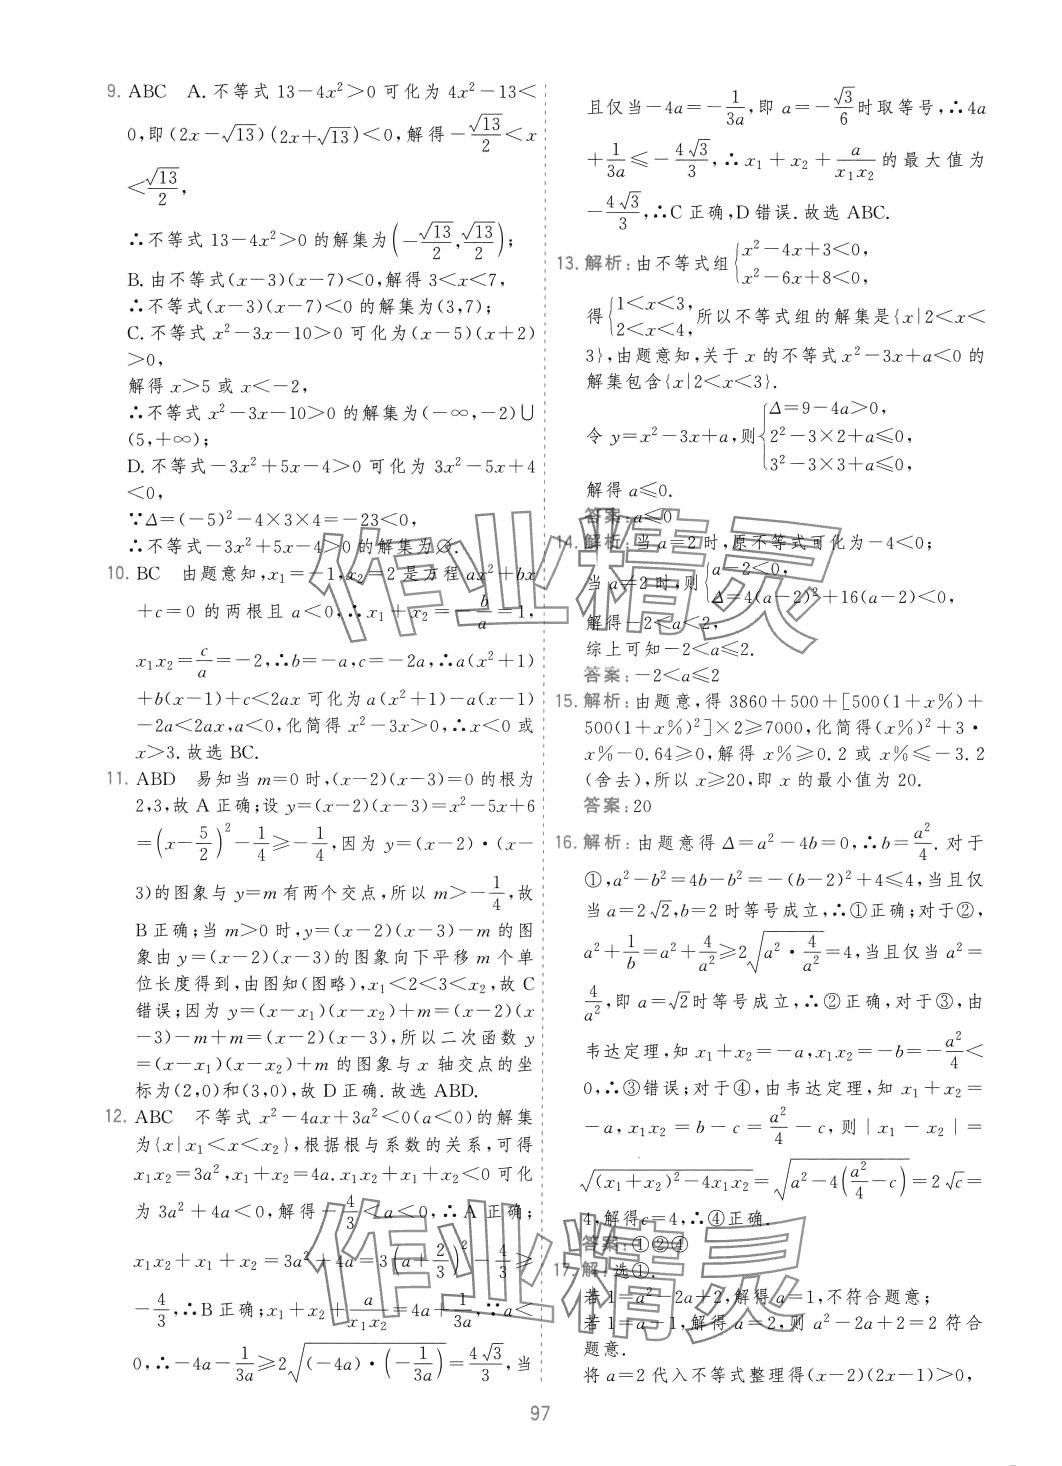 9. ABC　A. 不等式 13－4x²＞0 可化为 4x²－13＜
0,即(2x－√13)(2x+√13)＜0,解得－√13/2＜x
＜√13/2,
∴不等式 13－4x²＞0 的解集为(－√13/2,√13/2);
B. 由不等式(x－3)(x－7)＜0,解得 3＜x＜7,
∴不等式(x－3)(x－7)＜0 的解集为(3,7);
C. 不等式 x²－3x－10＞0 可化为(x－5)(x＋2)
＞0,
解得 x＞5 或 x＜－2,
∴不等式 x²－3x－10＞0 的解集为(－∞,－2)∪
(5,＋∞);
D. 不等式－3x²＋5x－4＞0 可化为 3x²－5x＋4
＜0,
∵Δ＝(－5)²－4×3×4＝－23＜0,
∴不等式－3x²＋5x－4＞0 的解集为∅.
10. BC　由题意知,x₁＝－1,x₂＝2 是方程 ax²＋bx
＋c＝0 的两根且 a＜0,∴x₁＋x₂＝－b/a＝1,
x₁x₂＝c/a＝－2,∴b＝－a,c＝－2a,∴a(x²＋1)
＋b(x－1)＋c＜2ax 可化为 a(x²＋1)－a(x－1)
－2a＜2ax,a＜0,化简得 x²－3x＞0,∴x＜0 或
x＞3. 故选 BC.
11. ABD　易知当 m＝0 时,(x－2)(x－3)＝0 的根为
2,3,故 A 正确;设 y＝(x－2)(x－3)＝x²－5x＋6
＝(x－5/2)²－1/4≥－1/4,因为 y＝(x－2)·(x－
3)的图象与 y＝m 有两个交点,所以 m＞－1/4,故
B 正确;当 m＞0 时,y＝(x－2)(x－3)－m 的图
象由 y＝(x－2)(x－3)的图象向下平移 m 个单
位长度得到,由图知(图略),x₁＜2＜3＜x₂,故 C
错误;因为 y＝(x－x₁)(x－x₂)＋m＝(x－2)(x
－3)－m＋m＝(x－2)(x－3),所以二次函数 y
＝(x－x₁)(x－x₂)＋m 的图象与 x 轴交点的坐
标为(2,0)和(3,0),故 D 正确. 故选 ABD.
12. ABC　不等式 x²－4ax＋3a²＜0(a＜0)的解集
为{x|x₁＜x＜x₂},根据根与系数的关系,可得
x₁x₂＝3a²,x₁＋x₂＝4a. x₁x₂＋x₁＋x₂＜0 可化
为 3a²＋4a＜0,解得－4/3＜a＜0,∴A 正确;
x₁x₂＋x₁＋x₂＝3a²＋4a＝3(a＋2/3)²－4/3≥
－4/3,∴B 正确;x₁＋x₂＋a/(x₁x₂)＝4a＋1/(3a),∵a＜
0,∴－4a－1/(3a)≥2√((－4a)·(－1/(3a)))＝4√3/3,当
且仅当－4a＝－1/(3a),即 a＝－√3/6时取等号,∴4a
＋1/(3a)≤－4√3/3,∴x₁＋x₂＋a/(x₁x₂)的最大值为
－4√3/3,∴C 正确,D 错误. 故选 ABC.
13. 解析:由不等式组{x²－4x＋3＜0,
x²－6x＋8＜0,
得{1＜x＜3,
2＜x＜4,所以不等式组的解集是{x|2＜x＜
3},由题意知,关于 x 的不等式 x²－3x＋a＜0 的
解集包含{x|2＜x＜3}.
令 y＝x²－3x＋a,则{Δ＝9－4a＞0,
2²－3×2＋a≤0,
3²－3×3＋a≤0,
解得 a≤0.
答案:a≤0
14. 解析:当 a＝2 时,原不等式可化为－4＜0;
当 a≠2 时,则{a－2＜0,
Δ＝4(a－2)²＋16(a－2)＜0,
解得－2＜a＜2,
综上可知－2＜a≤2.
答案:－2＜a≤2
15. 解析:由题意,得 3860＋500＋[500(1＋x%)＋
500(1＋x%)²]×2≥7000,化简得(x%)²＋3·
x%－0.64≥0,解得 x%≥0.2 或 x%≤－3.2
(舍去),所以 x≥20,即 x 的最小值为 20.
答案:20
16. 解析:由题意得 Δ＝a²－4b＝0,∴b＝a²/4. 对于
①,a²－b²＝4b－b²＝－(b－2)²＋4≤4,当且仅
当 a＝2√2,b＝2 时等号成立,∴①正确;对于②,
a²＋1/b＝a²＋4/a²≥2√(a²·4/a²)＝4,当且仅当 a²＝
4/a²,即 a＝√2时等号成立,∴②正确,对于③,由
韦达定理,知 x₁＋x₂＝－a,x₁x₂＝－b＝－a²/4＜
0,∴③错误;对于④,由韦达定理,知 x₁＋x₂＝
－a,x₁x₂＝b－c＝a²/4－c,则|x₁－x₂|＝
√((x₁＋x₂)²－4x₁x₂)＝√(a²－4(a²/4－c))＝2√c＝
4,解得c＝4,∴④正确.
答案:①②④
17. 解:选①.
若 1＝a²－2a＋2,解得 a＝1,不符合题意;
若 1＝a－1,解得 a＝2,则 a²－2a＋2＝2 符合
题意.
将 a＝2 代入不等式整理得(x－2)(2x－1)＞0,
97
作业精灵
作业精灵